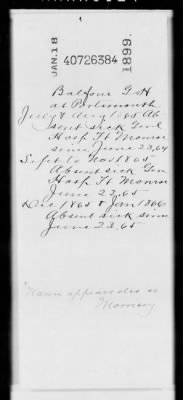 JAN. 18
40726384
1899.
Balfour G H
at Portsmouth
July & Aug 1865 Ab
sent sick Genl
Hosp Ft Monroe
since June 23, 64
Sept to Nov 1865
Absent sick Gen
Hosp Ft Monroe
June 23, 65
Dec 1865 & Jan 1866
Absent sick since
June 23, 65
Name appears also as